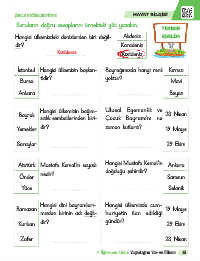 HAYAT BİLGİSİ
Soruların doğru cevaplarını örnekteki gibi yazalım.
Hangisi ülkemizdeki denizlerden biri değildir?
Karadeniz
Akdeniz
Karadeniz
İstanbul
Bursa
Ankara
Hangisi ülkemizin başkentidir?
Bayrağımızda hangi renk yoktur?
Kırmızı
Mavi
Beyaz
Bayrak
Yemekler
Saraylar
Hangisi ülkemizin bağımsızlık sembollerinden biridir?
Ulusal Egemenlik ve Çocuk Bayramı'nı ne zaman kutlarız?
23 Nisan
19 Mayıs
29 Ekim
Atatürk
Önder
Yüce
Hangisi Mustafa Kemal'in soyadıdır?
Hangisi Mustafa Kemal'in doğduğu şehirdir?
Ankara
Samsun
Selanik
Ramazan
Kurban
Zafer
Hangisi dini bayramlarımızdan birinin adı değildir?
Hangisi ülkemizde cumhuriyetin ilan edildiği gündür?
19 Mayıs
29 Ekim
23 Nisan